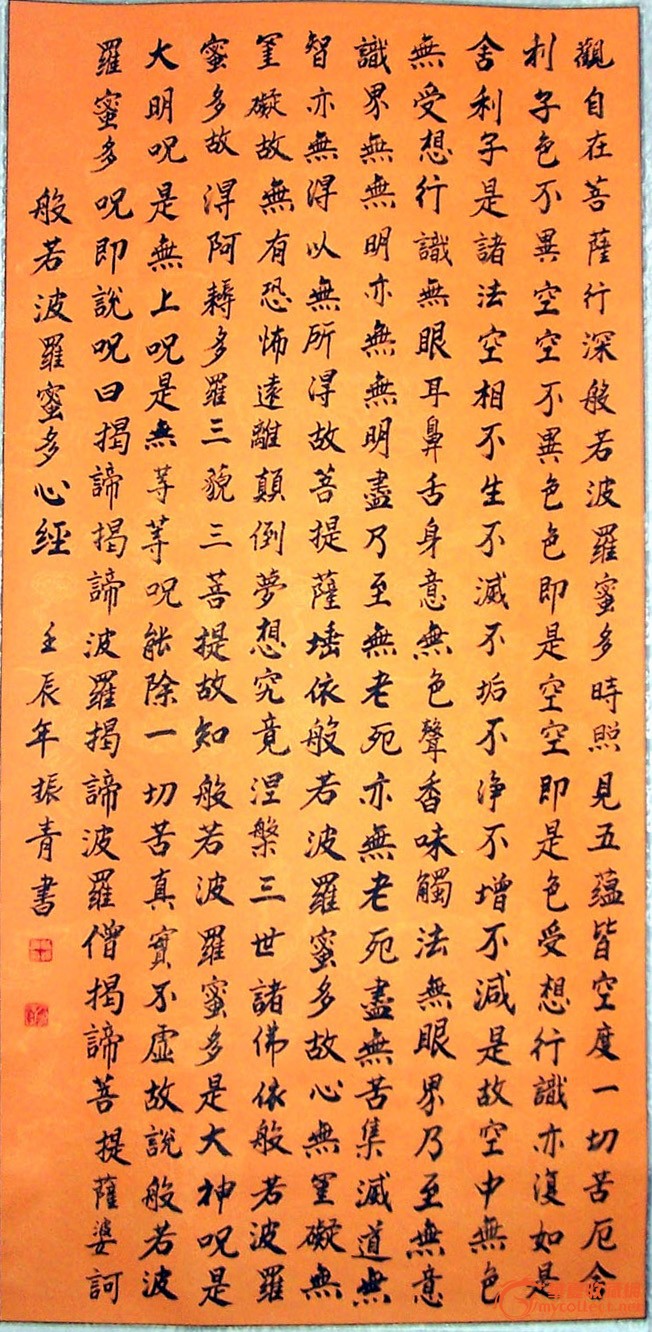 觀自在菩薩行深般若波羅蜜多時照見五蘊皆空度一切苦厄舍
利子色不異空空不異色色即是空空即是色受想行識亦復如是
舍利子是諸法空相不生不滅不垢不淨不增不減是故空中無色
無受想行識無眼耳鼻舌身意無色聲香味觸法無眼界乃至無意
識界無無明亦無無明盡乃至無老死亦無老死盡無苦集滅道無
智亦無得以無所得故菩提薩埵依般若波羅蜜多故心無罣礙無
罣礙故無有恐怖遠離顛倒夢想究竟涅槃三世諸佛依般若波羅
蜜多故得阿耨多羅三藐三菩提故知般若波羅蜜多是大神呪是
大明呪是無上呪是無等等呪能除一切苦真實不虛故說般若波
羅蜜多呪即說呪曰揭諦揭諦波羅揭諦波羅僧揭諦菩提薩婆訶
般若波羅蜜多心經
壬辰年振青書
mycollect.net